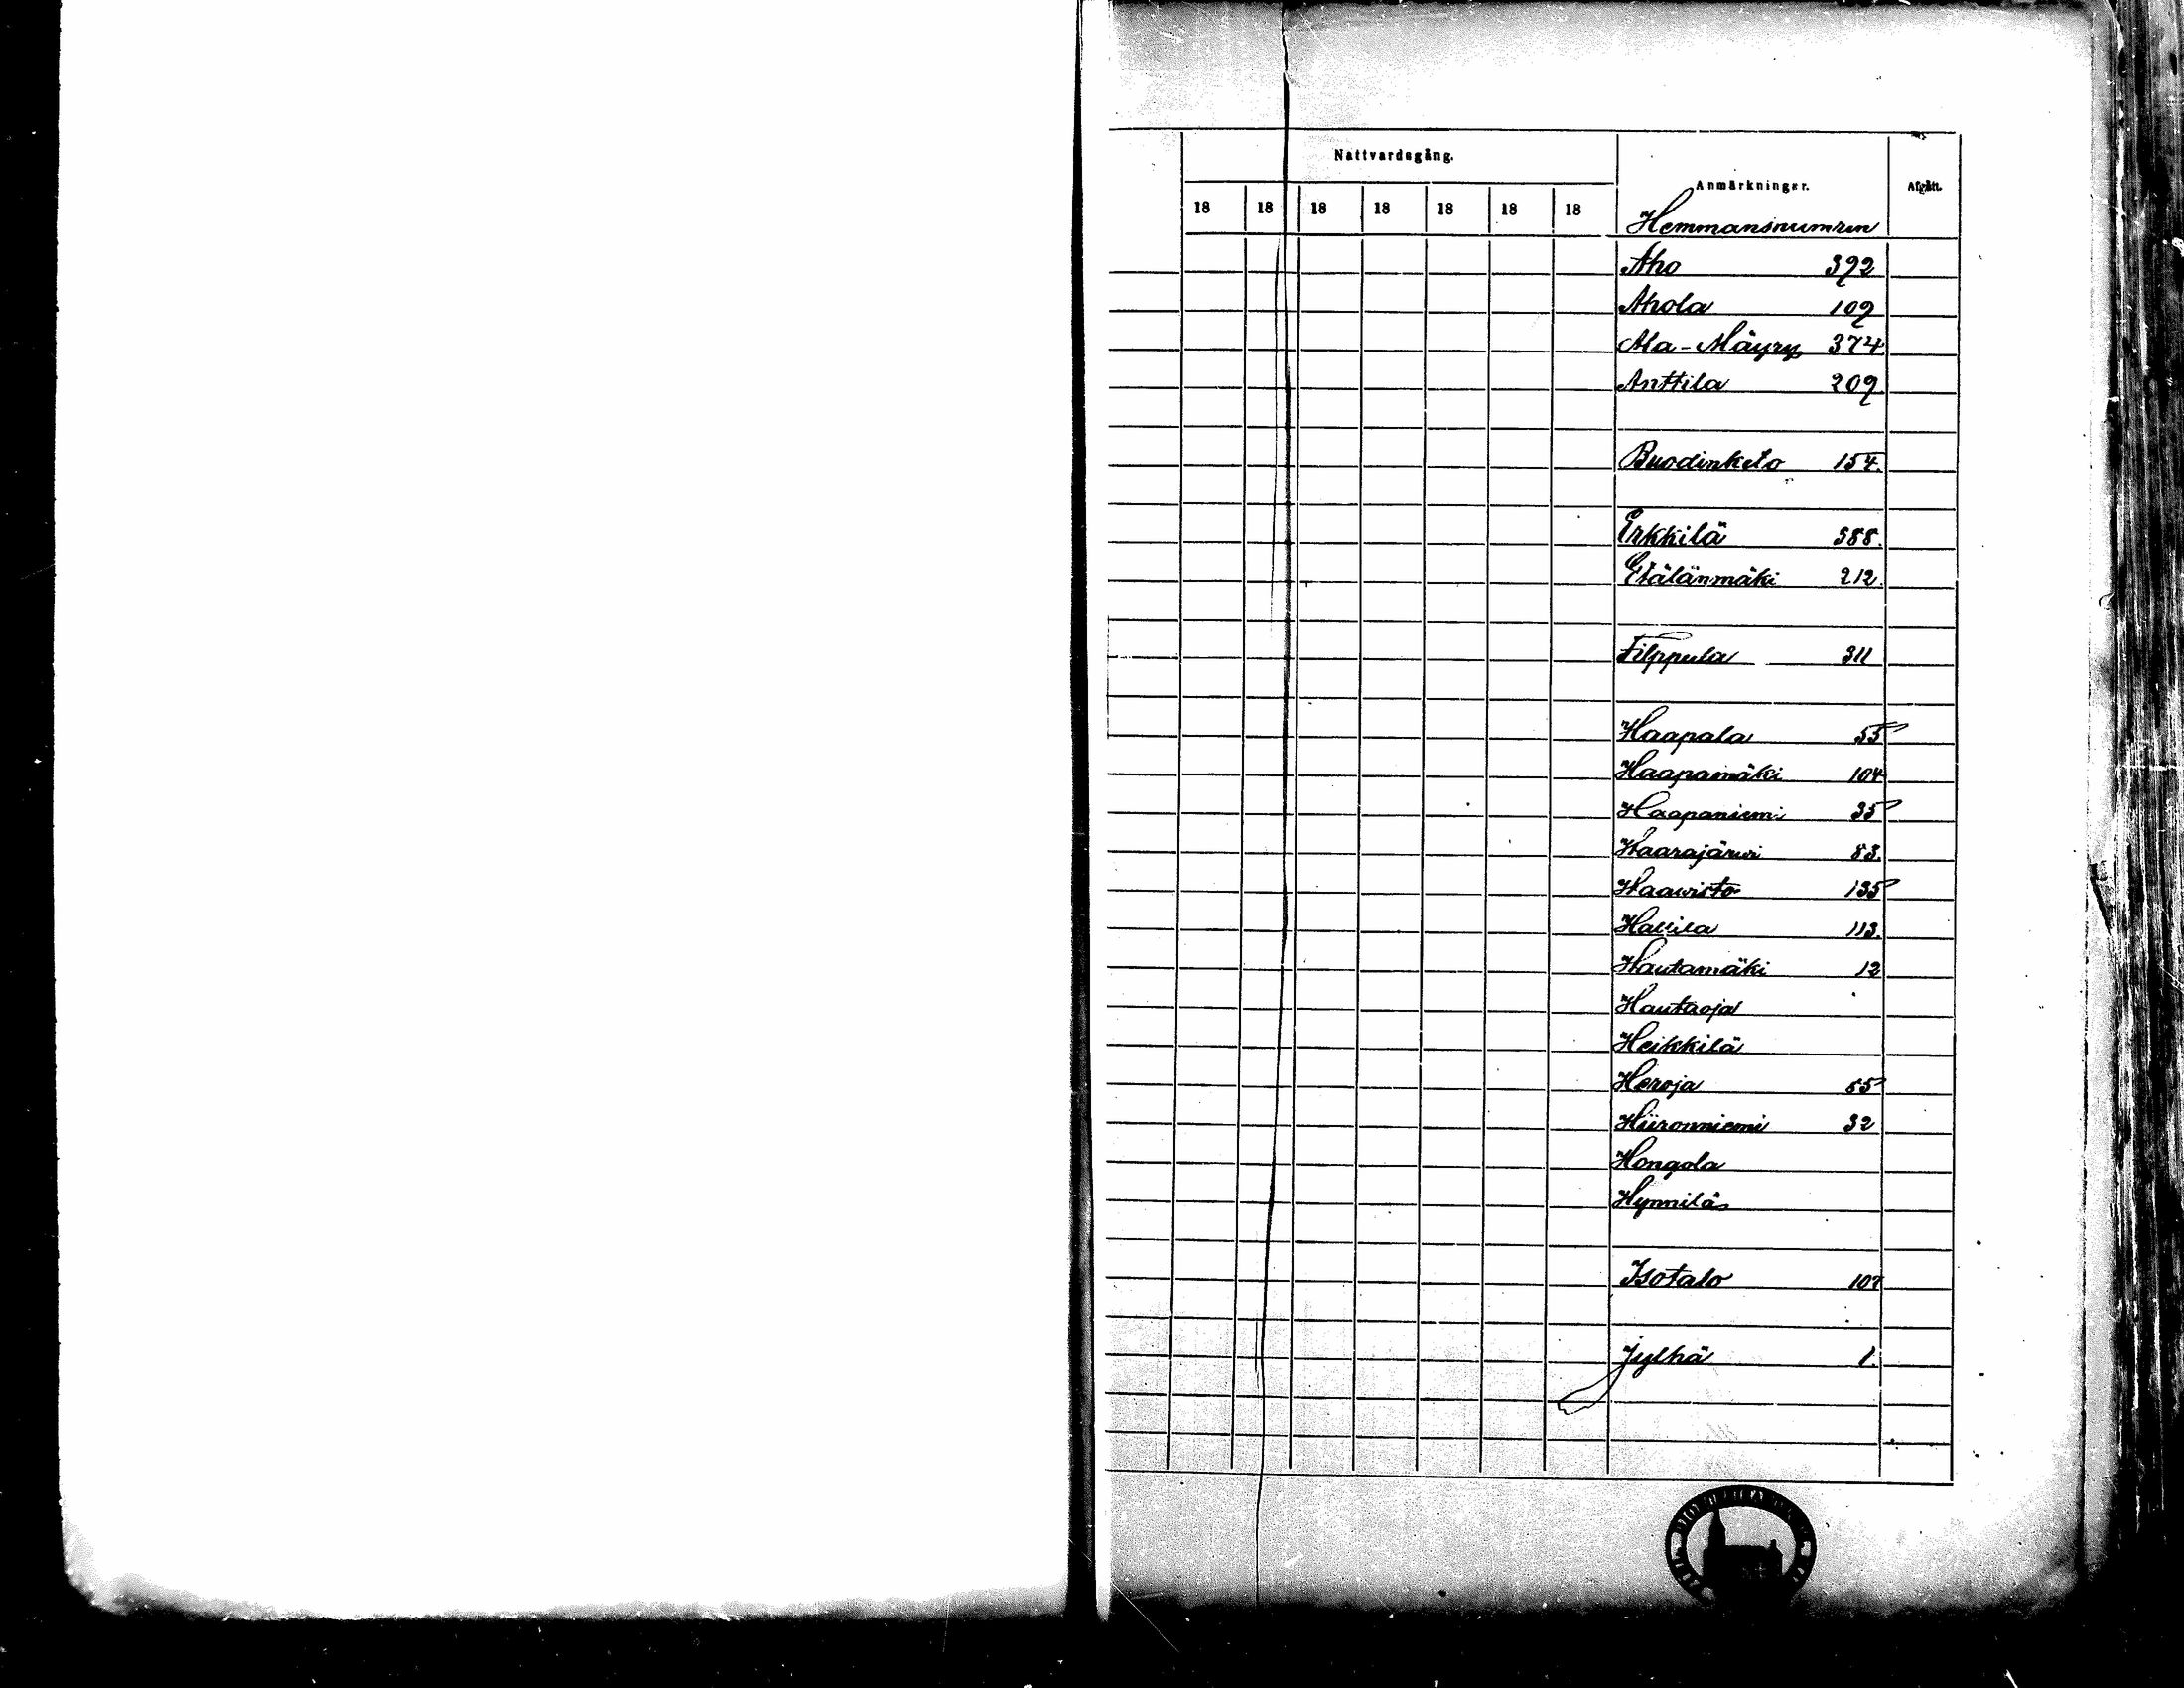 Nattvardsgång.
Anmärkninger.
Afgått.
18 18 18 18 18 18 18
Hemmansnumren
Aho 392
Ahola 109
Ala-Mäyry 374
Anttila 209.
Buodinketo 154.
Erkkilä 388.
Etälänmäki 212.
Filppula 311
Haapala 55
Haapamäki 104
Haapaniemi 35
Haarajärwi 83.
Haawisto 135
Hallila 113.
Hautamäki 12
Hautaoja
Heikkilä
Heroja 65
Hiironniemi 32
Hongola
Hynnilä
Isotalo 107
Jylhä 1.